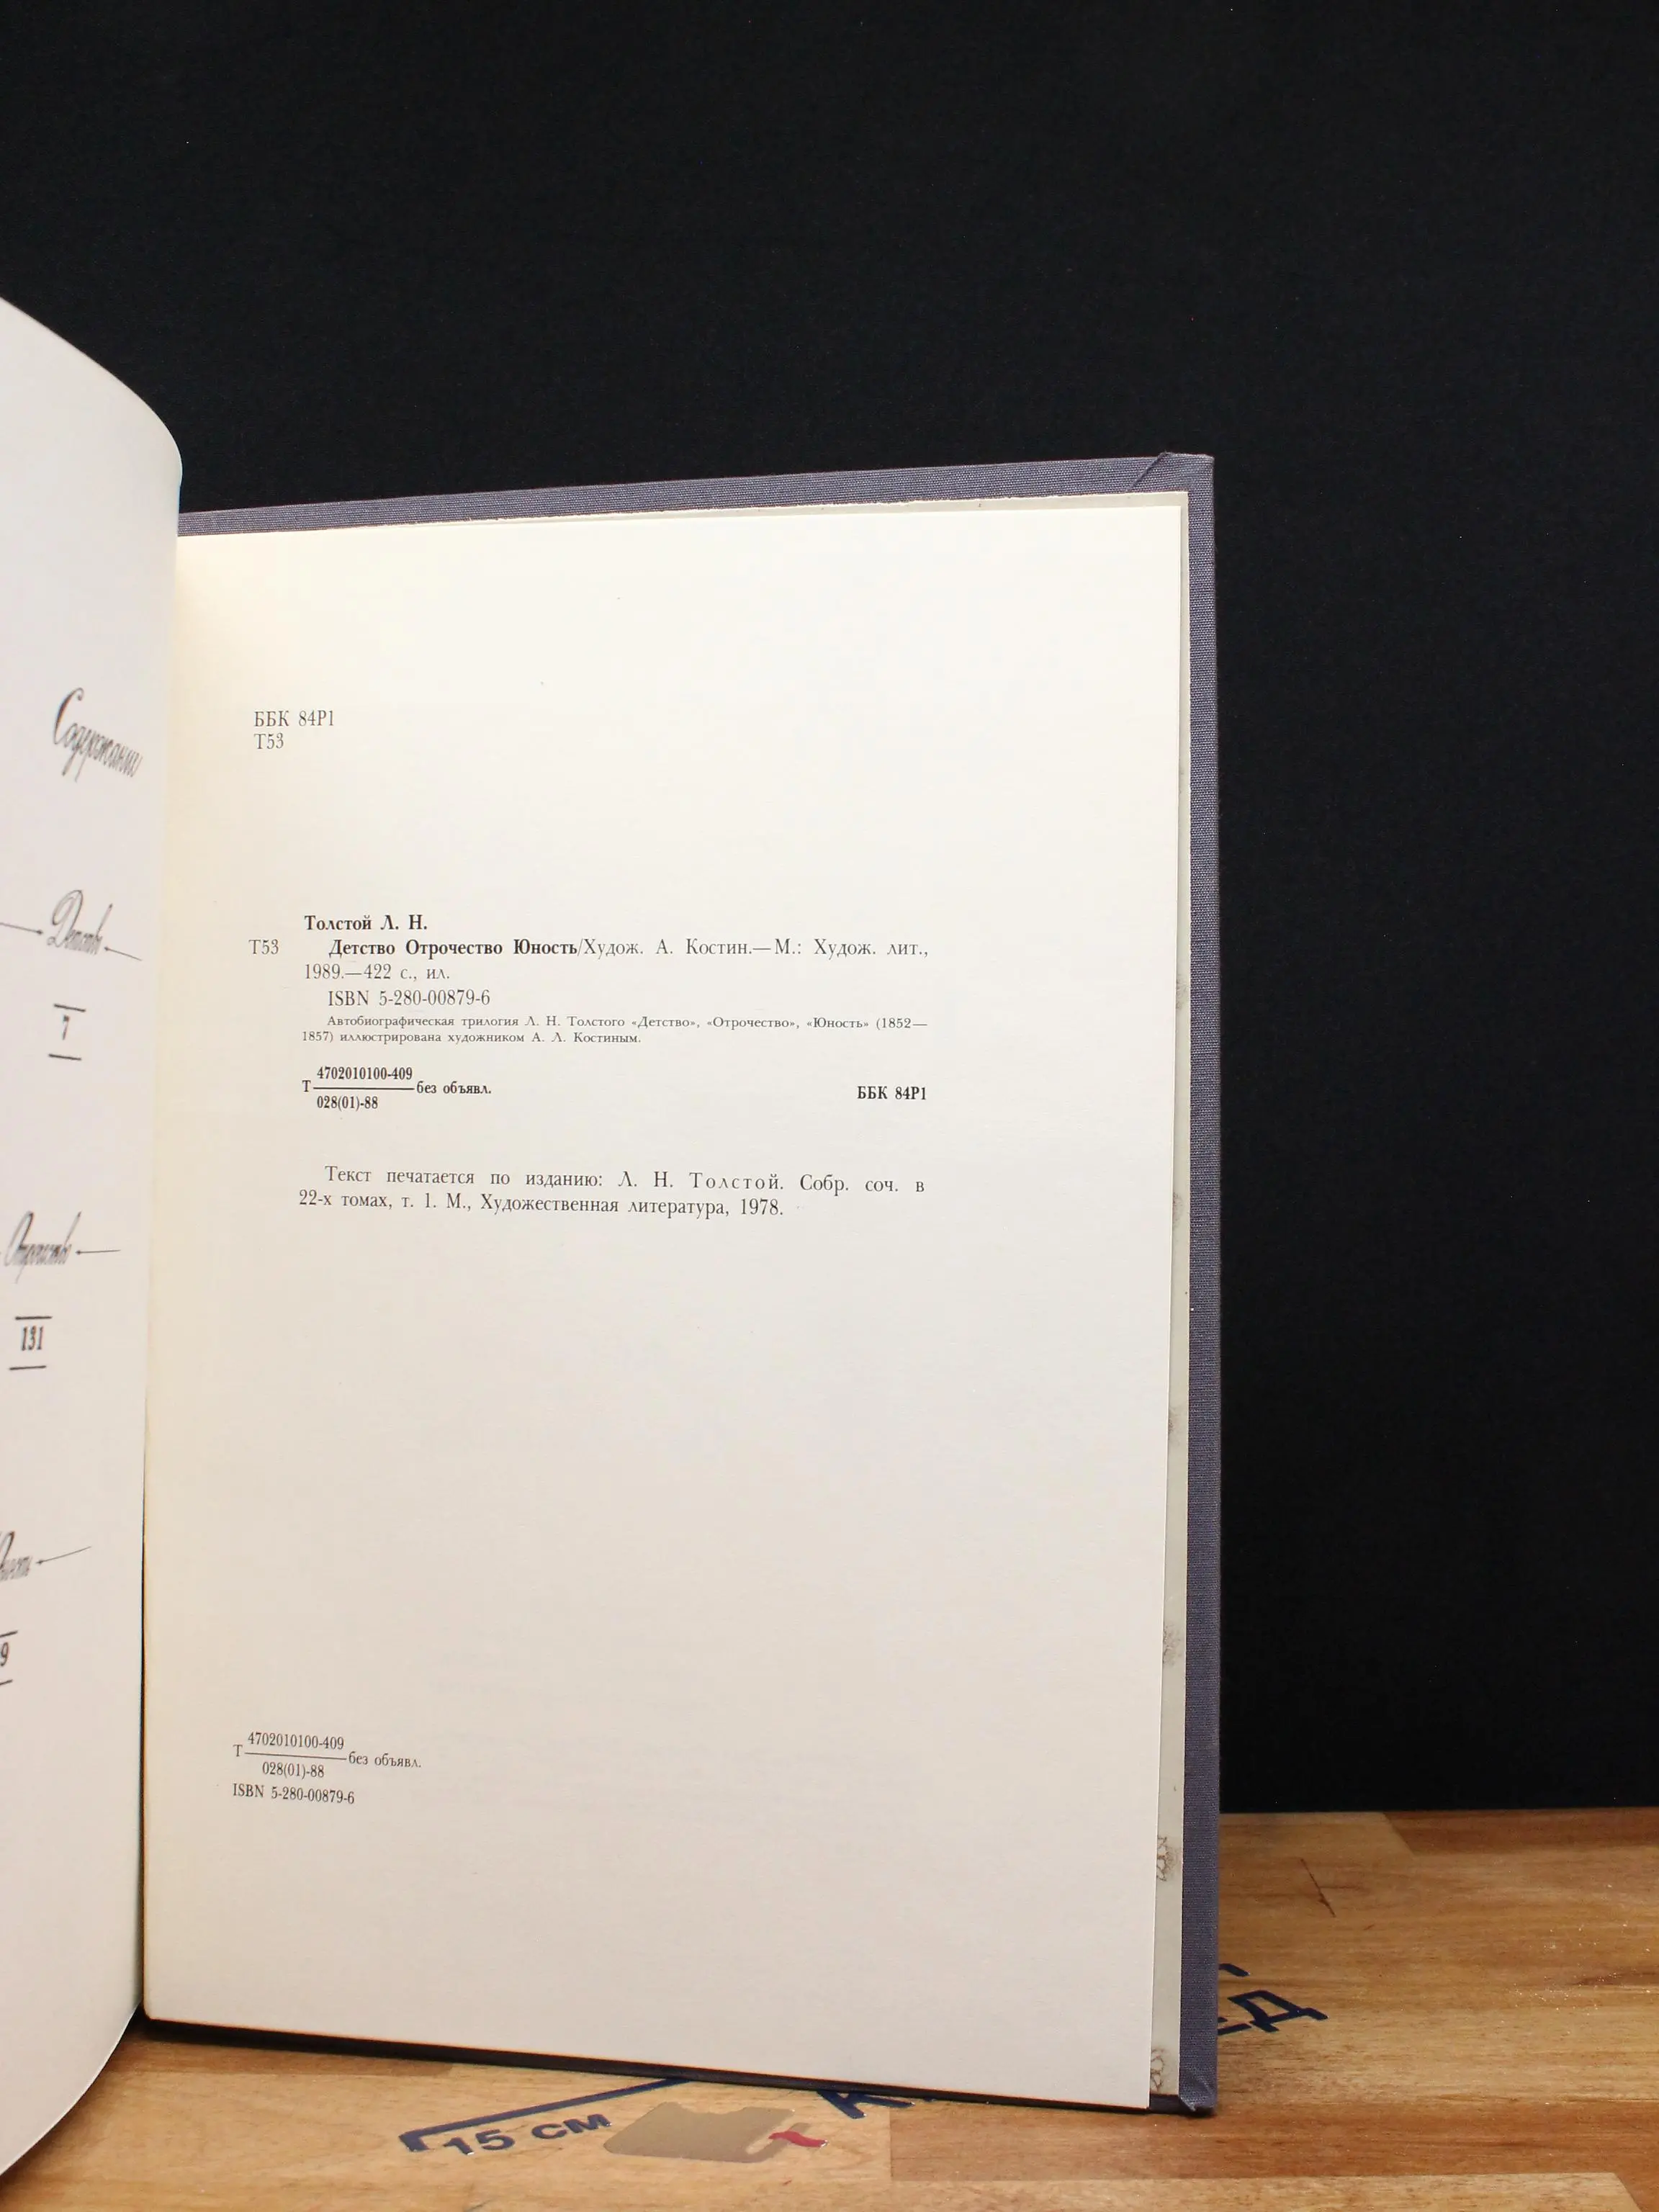 Содержание
Детство
7
Отрочество
131
9
ББК 84Р1
Т53
Толстой Л. Н.
Т53 Детство Отрочество Юность/Худож. А. Костин.— М.: Худож. лит.,
1989.—422 с., ил.
ISBN 5-280-00879-6
Автобиографическая трилогия Л. Н. Толстого «Детство», «Отрочество», «Юность» (1852—
1857) иллюстрирована художником А. Л. Костиным.
4702010100-409
Т без объявл.
028(01)-88
ББК 84Р1
Текст печатается по изданию: Л. Н. Толстой. Собр. соч. в
22-х томах, т. 1. М., Художественная литература, 1978.
4702010100-409
Т без объявл.
028(01)-88
ISBN 5-280-00879-6
15 СМ